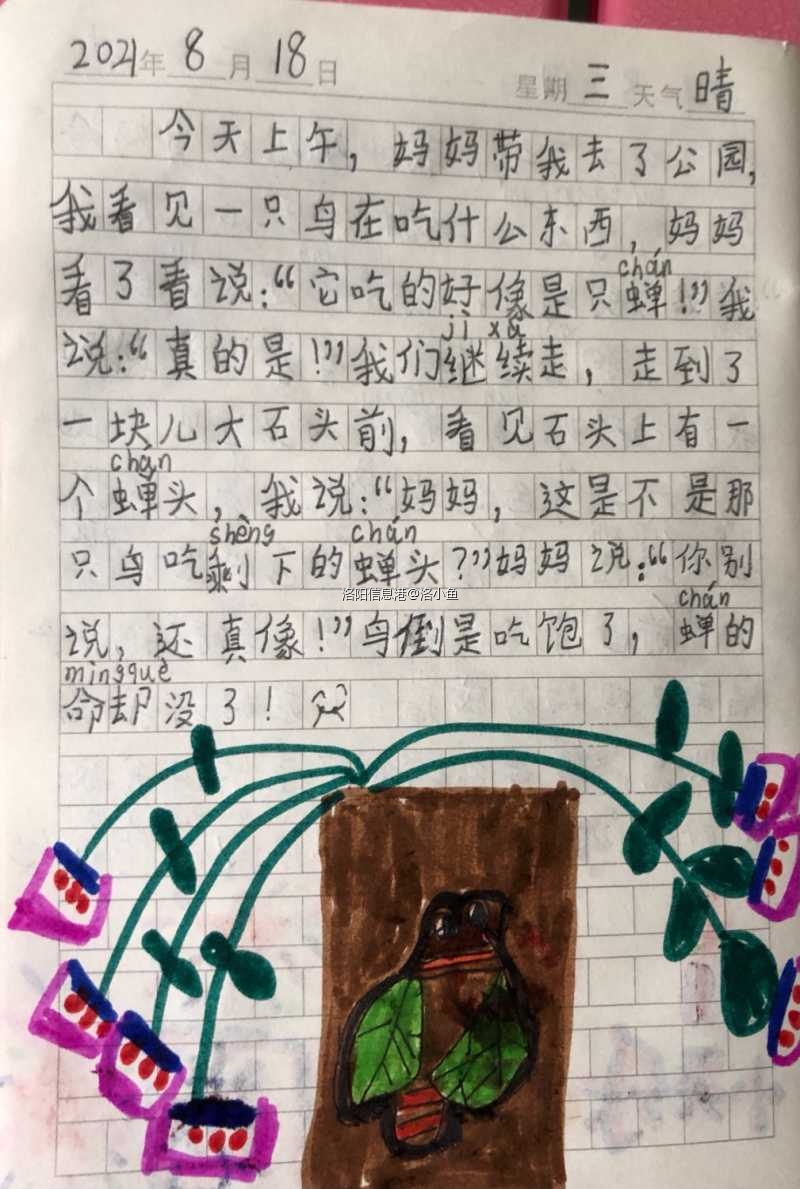 2021年8月18日 星期三天气晴
今天上午，妈妈带我去了公园，
我看见一只鸟在吃什么东西，妈妈
chán
看了看说：“它吃的好像是只蝉！”我
jì xù
说：“真的是！”我们继续走，走到了
一块儿大石头前，看见石头上有一
chán
个蝉头，我说：“妈妈，这是不是那
shèng chán
只鸟吃剩下的蝉头？”妈妈说：“你别
洛阳信息港@洛小鱼
chán
说，还真像！”鸟倒是吃饱了，蝉的
mìngquè
命却没了！